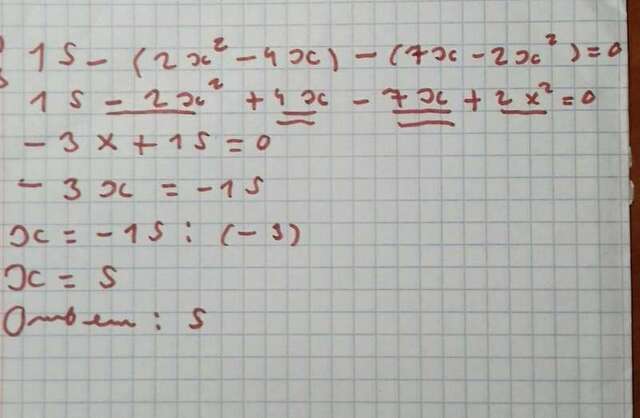 15 - (2x² - 4x) - (7x - 2x²) = 0
15 - 2x² + 4x - 7x + 2x² = 0
- 3x + 15 = 0
- 3x = -15
x = -15 : (-3)
x = 5
Ответ : 5